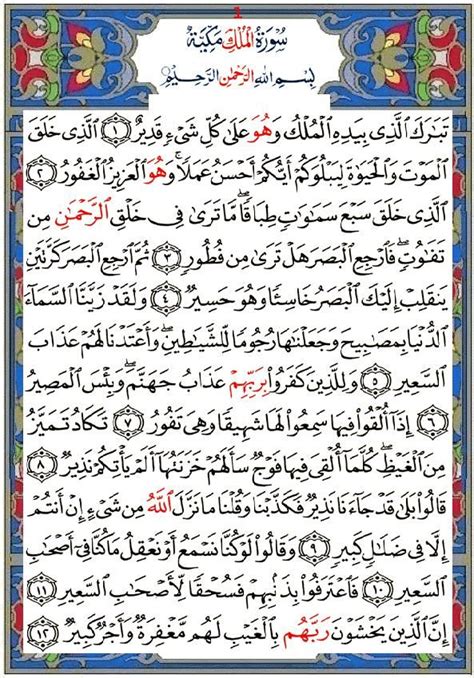 1
سُورَةُ الْمُلْكِ مَكِّيَّة
بِسْمِ اللَّهِ الرَّحْمَٰنِ الرَّحِيمِ
تَبَارَكَ الَّذِي بِيَدِهِ الْمُلْكُ وَهُوَ عَلَىٰ كُلِّ شَيْءٍ قَدِيرٌ ﴿١﴾ الَّذِي خَلَقَ
الْمَوْتَ وَالْحَيَوٰةَ لِيَبْلُوَكُمْ أَيُّكُمْ أَحْسَنُ عَمَلًا ۚ وَهُوَ الْعَزِيزُ الْغَفُورُ ﴿٢﴾
الَّذِي خَلَقَ سَبْعَ سَمَٰوَٰتٍ طِبَاقًا ۖ مَّا تَرَىٰ فِي خَلْقِ الرَّحْمَٰنِ مِن
تَفَٰوُتٍ ۖ فَارْجِعِ الْبَصَرَ هَلْ تَرَىٰ مِن فُطُورٍ ﴿٣﴾ ثُمَّ ارْجِعِ الْبَصَرَ كَرَّتَيْنِ
يَنقَلِبْ إِلَيْكَ الْبَصَرُ خَاسِئًا وَهُوَ حَسِيرٌ ﴿٤﴾ وَلَقَدْ زَيَّنَّا السَّمَآءَ
الدُّنْيَا بِمَصَٰبِيحَ وَجَعَلْنَٰهَا رُجُومًا لِّلشَّيَٰطِينِ ۖ وَأَعْتَدْنَا لَهُمْ عَذَابَ
السَّعِيرِ ﴿٥﴾ وَلِلَّذِينَ كَفَرُوا۟ بِرَبِّهِمْ عَذَابُ جَهَنَّمَ ۖ وَبِئْسَ الْمَصِيرُ
﴿٦﴾ إِذَآ أُلْقُوا۟ فِيهَا سَمِعُوا۟ لَهَا شَهِيقًا وَهِيَ تَفُورُ ﴿٧﴾ تَكَادُ تَمَيَّزُ
مِنَ الْغَيْظِ ۖ كُلَّمَآ أُلْقِيَ فِيهَا فَوْجٌ سَأَلَهُمْ خَزَنَتُهَآ أَلَمْ يَأْتِكُمْ نَذِيرٌ ﴿٨﴾
قَالُوا۟ بَلَىٰ قَدْ جَآءَنَا نَذِيرٌ فَكَذَّبْنَا وَقُلْنَا مَا نَزَّلَ اللَّهُ مِن شَيْءٍ إِنْ أَنتُمْ
إِلَّا فِي ضَلَٰلٍ كَبِيرٍ ﴿٩﴾ وَقَالُوا۟ لَوْ كُنَّا نَسْمَعُ أَوْ نَعْقِلُ مَا كُنَّا فِىٓ أَصْحَٰبِ
السَّعِيرِ ﴿١٠﴾ فَاعْتَرَفُوا۟ بِذَنۢبِهِمْ فَسُحْقًا لِّأَصْحَٰبِ السَّعِيرِ ﴿١١﴾
إِنَّ الَّذِينَ يَخْشَوْنَ رَبَّهُم بِالْغَيْبِ لَهُم مَّغْفِرَةٌ وَأَجْرٌ كَبِيرٌ ﴿١٢﴾